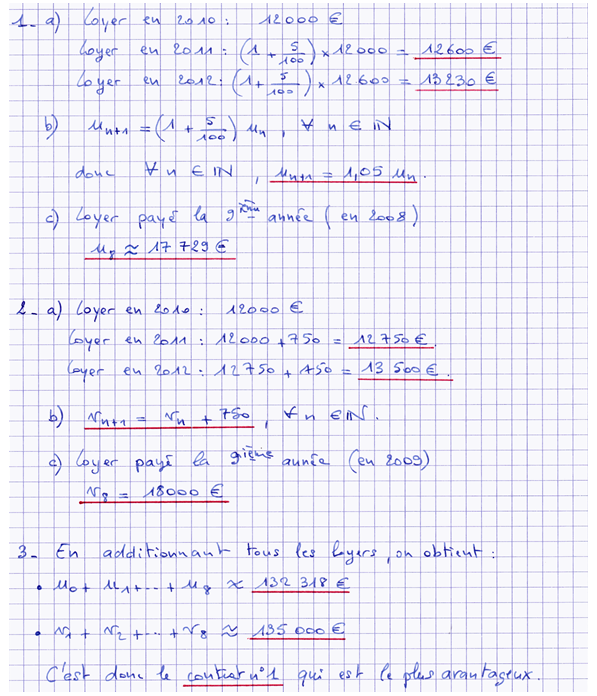 1- a) Loyer en 2010 : 12000 €
Loyer en 2011 : (1 + 5/100) × 12000 = 12600 €
Loyer en 2012 : (1 + 5/100) × 12600 = 13230 €
b) uₙ₊₁ = (1 + 5/100) uₙ , ∀ n ∈ ℕ
donc ∀ n ∈ ℕ , uₙ₊₁ = 1,05 uₙ .
c) Loyer payé la 9ème année (en 2008)
u₈ ≈ 17 729 €
2- a) Loyer en 2010 : 12000 €
Loyer en 2011 : 12000 + 750 = 12750 € .
Loyer en 2012 : 12750 + 750 = 13 500 € .
b) vₙ₊₁ = vₙ + 750 , ∀ n ∈ ℕ .
c) Loyer payé la 9ième année (en 2009)
v₈ = 18000 €
3- En additionnant tous les loyers, on obtient :
• u₀ + u₁ + ... + u₈ ≈ 132 318 €
• v₁ + v₂ + ... + v₈ ≈ 135 000 €
C'est donc le contrat n°1 qui est le plus avantageux.